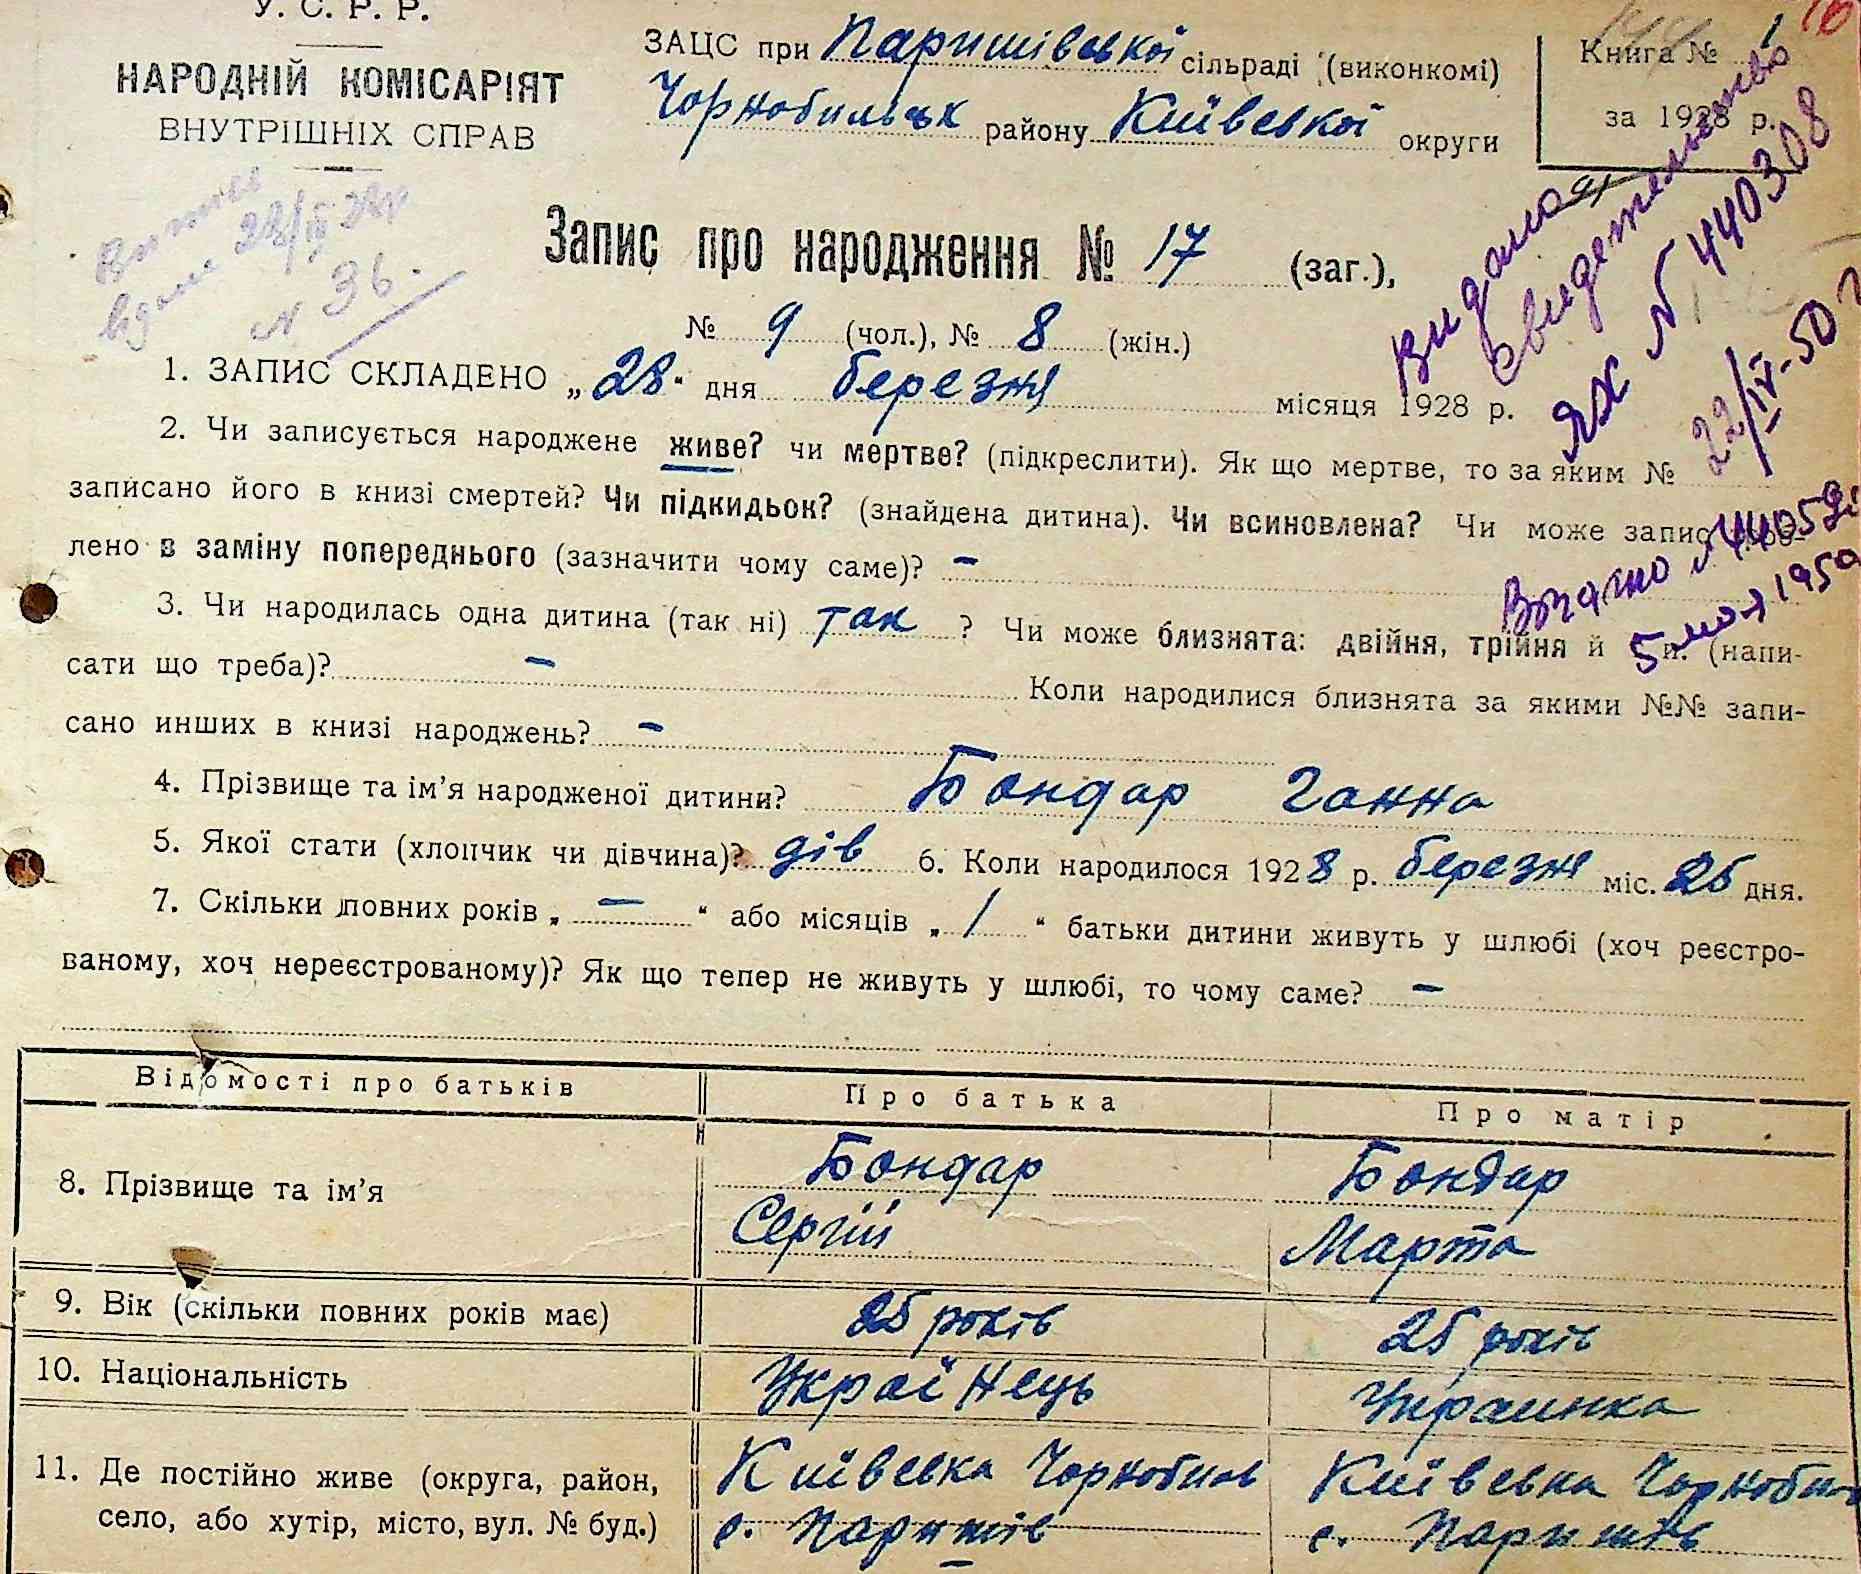 У. С. Р. Р.
НАРОДНІЙ КОМІСАРІЯТ
ВНУТРІШНІХ СПРАВ
ЗАЦС при Паришівської сільраді (виконкомі)
Чорнобильськ району Київської округи
Книга № 1
за 1928 р.
Витяг
28/IV 28р
N 36.
Видано свидетельство
ЯХ N 440308
22/IV-50 г
Запис про народження № 17 (заг.),
№ 9 (чол.), № 8 (жін.)
1. ЗАПИС СКЛАДЕНО „28“ дня березня місяця 1928 р.
2. Чи записується народжене живе? чи мертве? (підкреслити). Як що мертве, то за яким №
записано його в книзі смертей? Чи підкидьок? (знайдена дитина). Чи всиновлена? Чи може запис
лено в заміну попереднього (зазначити чому саме)? –
5 1950
3. Чи народилась одна дитина (так ні) так ? Чи може близнята: двійня, трійня й (напи-
сати що треба)? – Коли народилися близнята за якими №№ запи-
сано инших в книзі народжень? –
4. Прізвище та ім'я народженої дитини? Бондар Ганна
5. Якої стати (хлопчик чи дівчина)? дів 6. Коли народилося 1928 р. березня міс. 25 дня.
7. Скільки повних років „ – “ або місяців „ / “ батьки дитини живуть у шлюбі (хоч реєстро-
ваному, хоч нереєстрованому)? Як що тепер не живуть у шлюбі, то чому саме? –
Відомості про батьків Про батька Про матір
8. Прізвище та ім'я Бондар Сергій Бондар Марта
9. Вік (скільки повних років має) 25 років 25 років
10. Національність Українець Украинка
11. Де постійно живе (округа, район, Київська Чорнобил Київська Чорнобил
село, або хутір, місто, вул. № буд.) с. Паришів с. Паришів